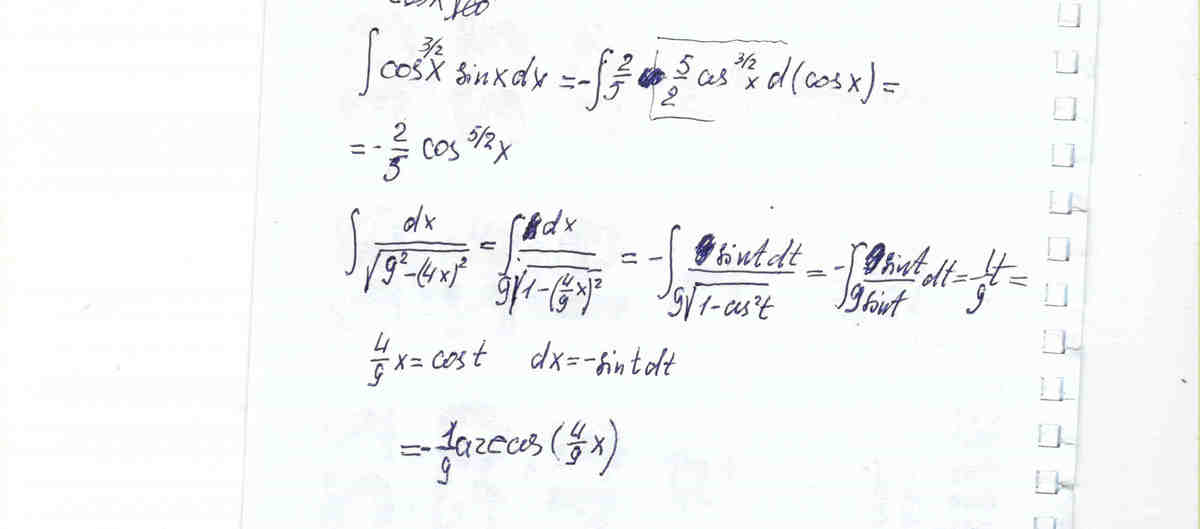 ∫ cos^{3/2}x sinx dx = -∫ 2/5 5/2 cos^{3/2}x d(cosx) =
= -2/5 cos^{5/2}x
∫ dx/√(9²-(4x)²) = ∫ dx/(9√(1-(4/9 x)²)) = -∫ sint dt/(9√(1-cos²t)) = -∫ sint/(9 sint) dt = -1/9 t =
4/9 x = cost dx = -sint dt
= -1/9 arccos(4/9 x)